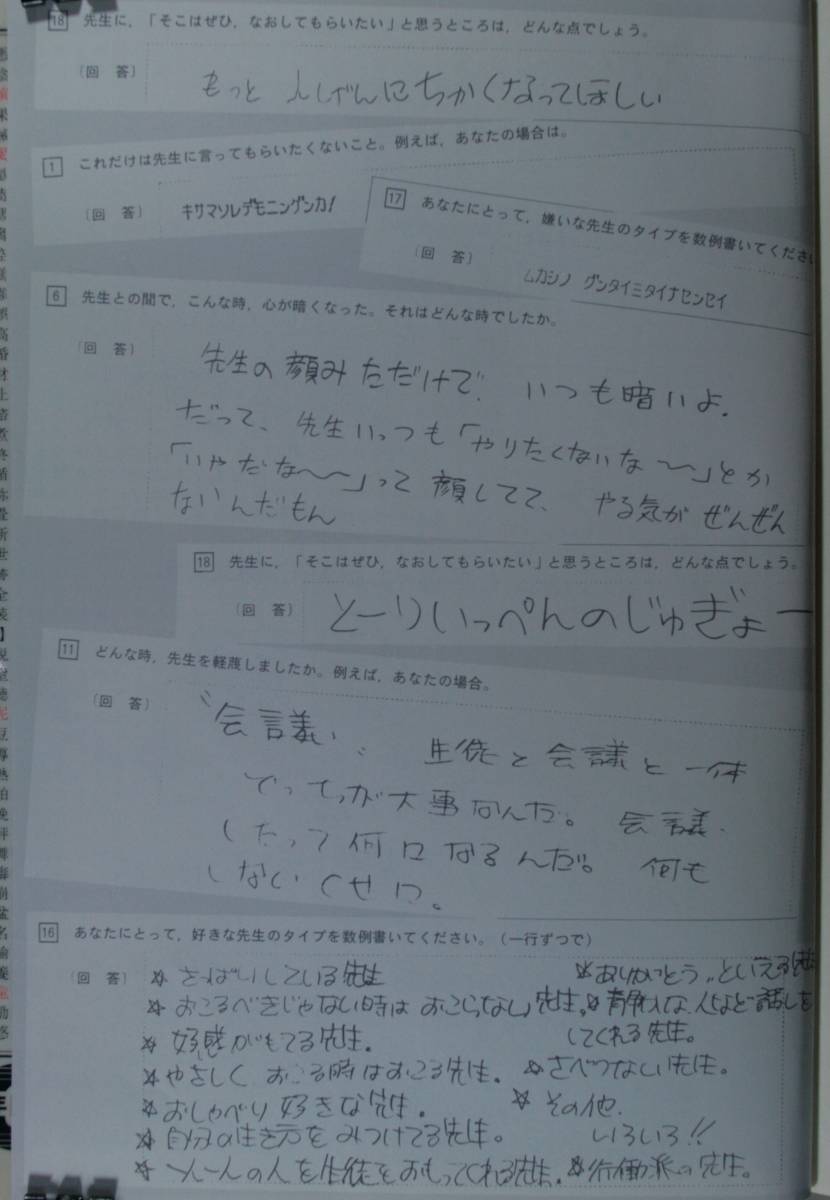 18 先生に,「そこはぜひ, なおしてもらいたい」と思うところは, どんな点でしょう。
(回 答) もっと しぜんにちかくなってほしい
1 これだけは先生に言ってもらいたくないこと。例えば, あなたの場合は。
(回 答) キサマソレデモニンゲンカ!
17 あなたにとって, 嫌いな先生のタイプを数例書いてください
(回 答) ムカシノ グンタイミタイナセンセイ
6 先生との間で, こんな時, 心が暗くなった。それはどんな時でしたか。
(回 答) 先生の顔みただけで、いつも暗いよ.
だって、先生いっつも「やりたくないな〜〜」とか
「いやだな〜〜」って顔してて、やる気がぜんぜん
ないんだもん
18 先生に,「そこはぜひ, なおしてもらいたい」と思うところは, どんな点でしょう。
(回 答) とーりいっぺんのじゅぎょー
11 どんな時, 先生を軽蔑しましたか。例えば, あなたの場合。
(回 答) 〝会議〟 生徒と会議と一体
どっちが大事なんだ。会議
したって何になるんだ。何も
しないくせに。
16 あなたにとって, 好きな先生のタイプを数例書いてください。(一行ずつで)
(回 答) ☆さっぱりしている先生
☆おこるべきじゃない時は おこらない 先生。
☆好感がもてる先生.
☆やさしく おこる時はおこる先生.
☆おしゃべり 好きな先生.
☆自分の生き方をみつけてる先生。
☆一人一人の人を生徒とおもってくれる先生.
☆〝ありがとう〟といえる先生
話しを
してくれる先生。
☆さべつない先生。
☆その他.
いろいろ!!
☆行動派の先生。